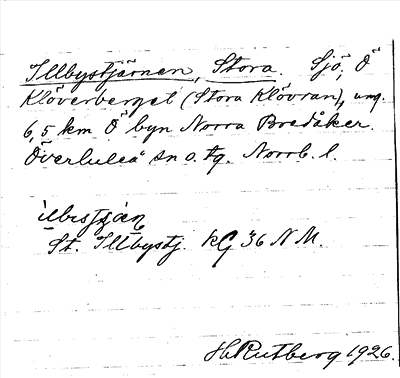 Illbystjärnen, Stora. Sjö, Ö
Klöverberget (Stora Klövran), ung.
6,5 km Ö byn Norra Bredåker.
Överluleå sn o. tg. Norrb. l.
St. Illbystj. kG 36 N M.
H. Rutberg 1926.